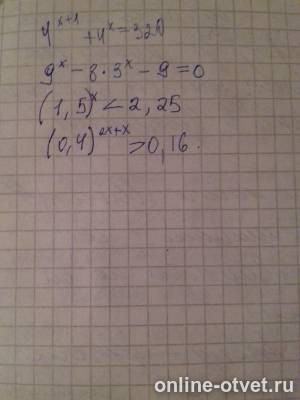 4^{x+1} + 4^x = 320
9^x - 8 · 3^x - 9 = 0
(1,5)^x < 2,25
(0,4)^{2x+x} > 0,16.
online-otvet.ru